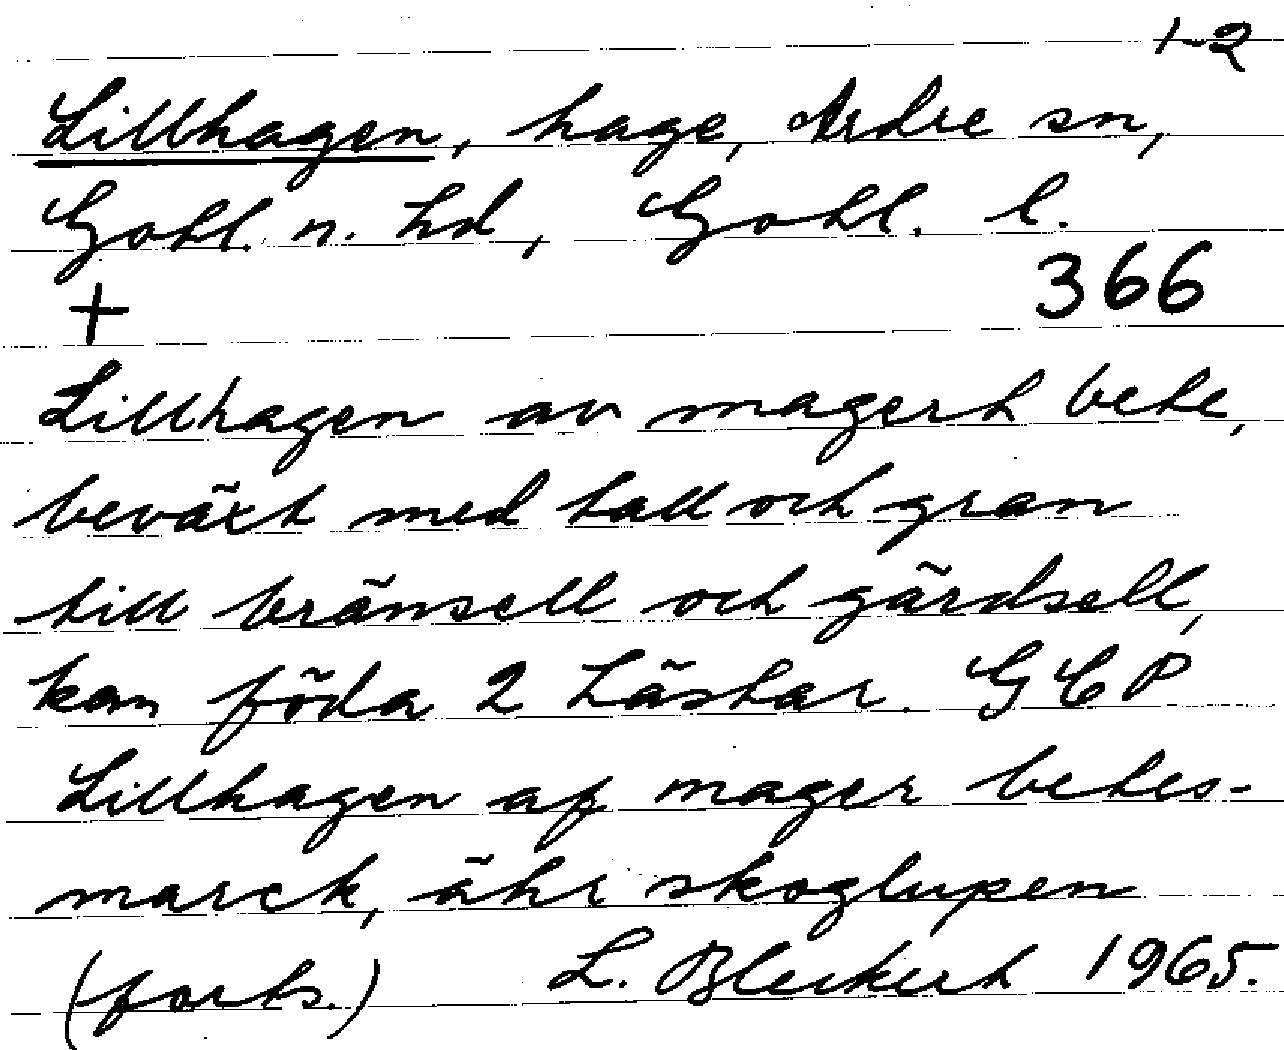 1-2
Lillhagen, hage, Ardre sn,
Gotl. n. hd, Gotl. l.
+ 366
Lillhagen av magert bete,
beväxt med tall och gran
till bränsell och gärdsell,
kan föda 2 hästar. GCP
Lillhagen af mager betes-
marck, ähr skoglupen
(forts.) L. Bleckert 1965.